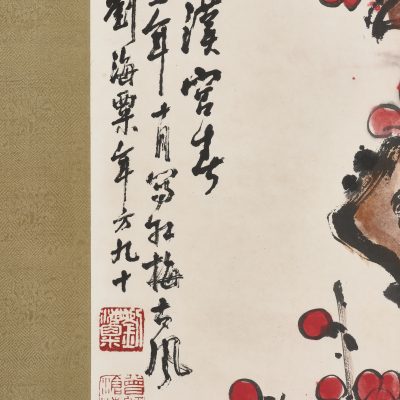 漢宮春
年十月寫紅梅古風
劉海粟年方九十